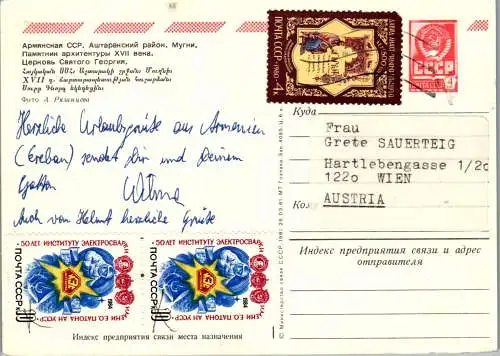 Армянская ССР. Аштаракский район. Мугни.
Памятник архитектуры XVII века.
Церковь Святого Георгия.
Հայկական ՍՍՀ Աշտարակի շրջան Մուղնի
XVII դ. Ճարտարապետության հուշարձան
Սուրբ Գևորգ եկեղեցին
Фото А. Рязанцева
Herzliche Urlaubsgrüße aus Armenien
(Ereban) sendet Dir und Deinem
Gatten
Wilma
Auch von Helmut herzliche Grüße
ПОЧТА СССР
4к
СССР
4
Куда
Frau
Grete SAUERTEIG
Hartlebengasse 1/2c
1220 WIEN
AUSTRIA
Индекс предприятия связи и адрес
отправителя
50 ЛЕТ ИНСТИТУТУ ЭЛЕКТРОСВАРКИ
ИМ. Е.О. ПАТОНА АН УССР
ПОЧТА СССР
10к
1984
50 ЛЕТ ИНСТИТУТУ ЭЛЕКТРОСВАРКИ
ИМ. Е.О. ПАТОНА АН УССР
ПОЧТА СССР
10к
1984
Индекс предприятия связи места назначения
© Министерство связи СССР